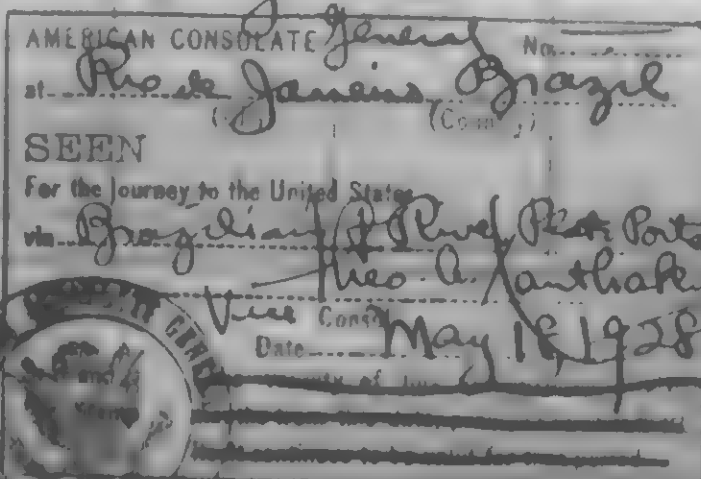 AMERICAN CONSULATE General No.
at Rio de Janeiro Brazil
SEEN
For the journey to the United States
via Brazilian & River Plate Ports
Theo. A. Xanthaky
Vice Consul
Date May 18, 1928